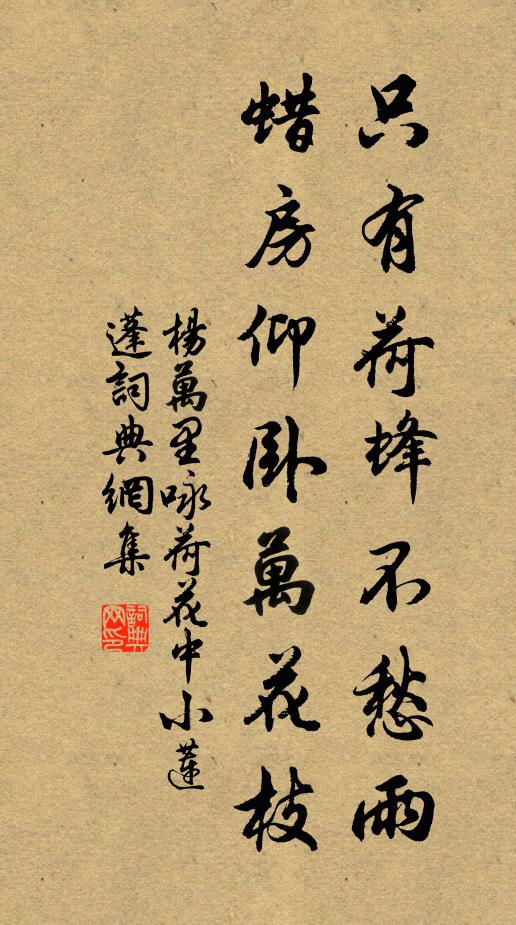 只有荷蜂不愁雨
蜡房仰卧萬花枝
楊萬里咏荷花中小蓮
蓬詞典網集
詞典網印